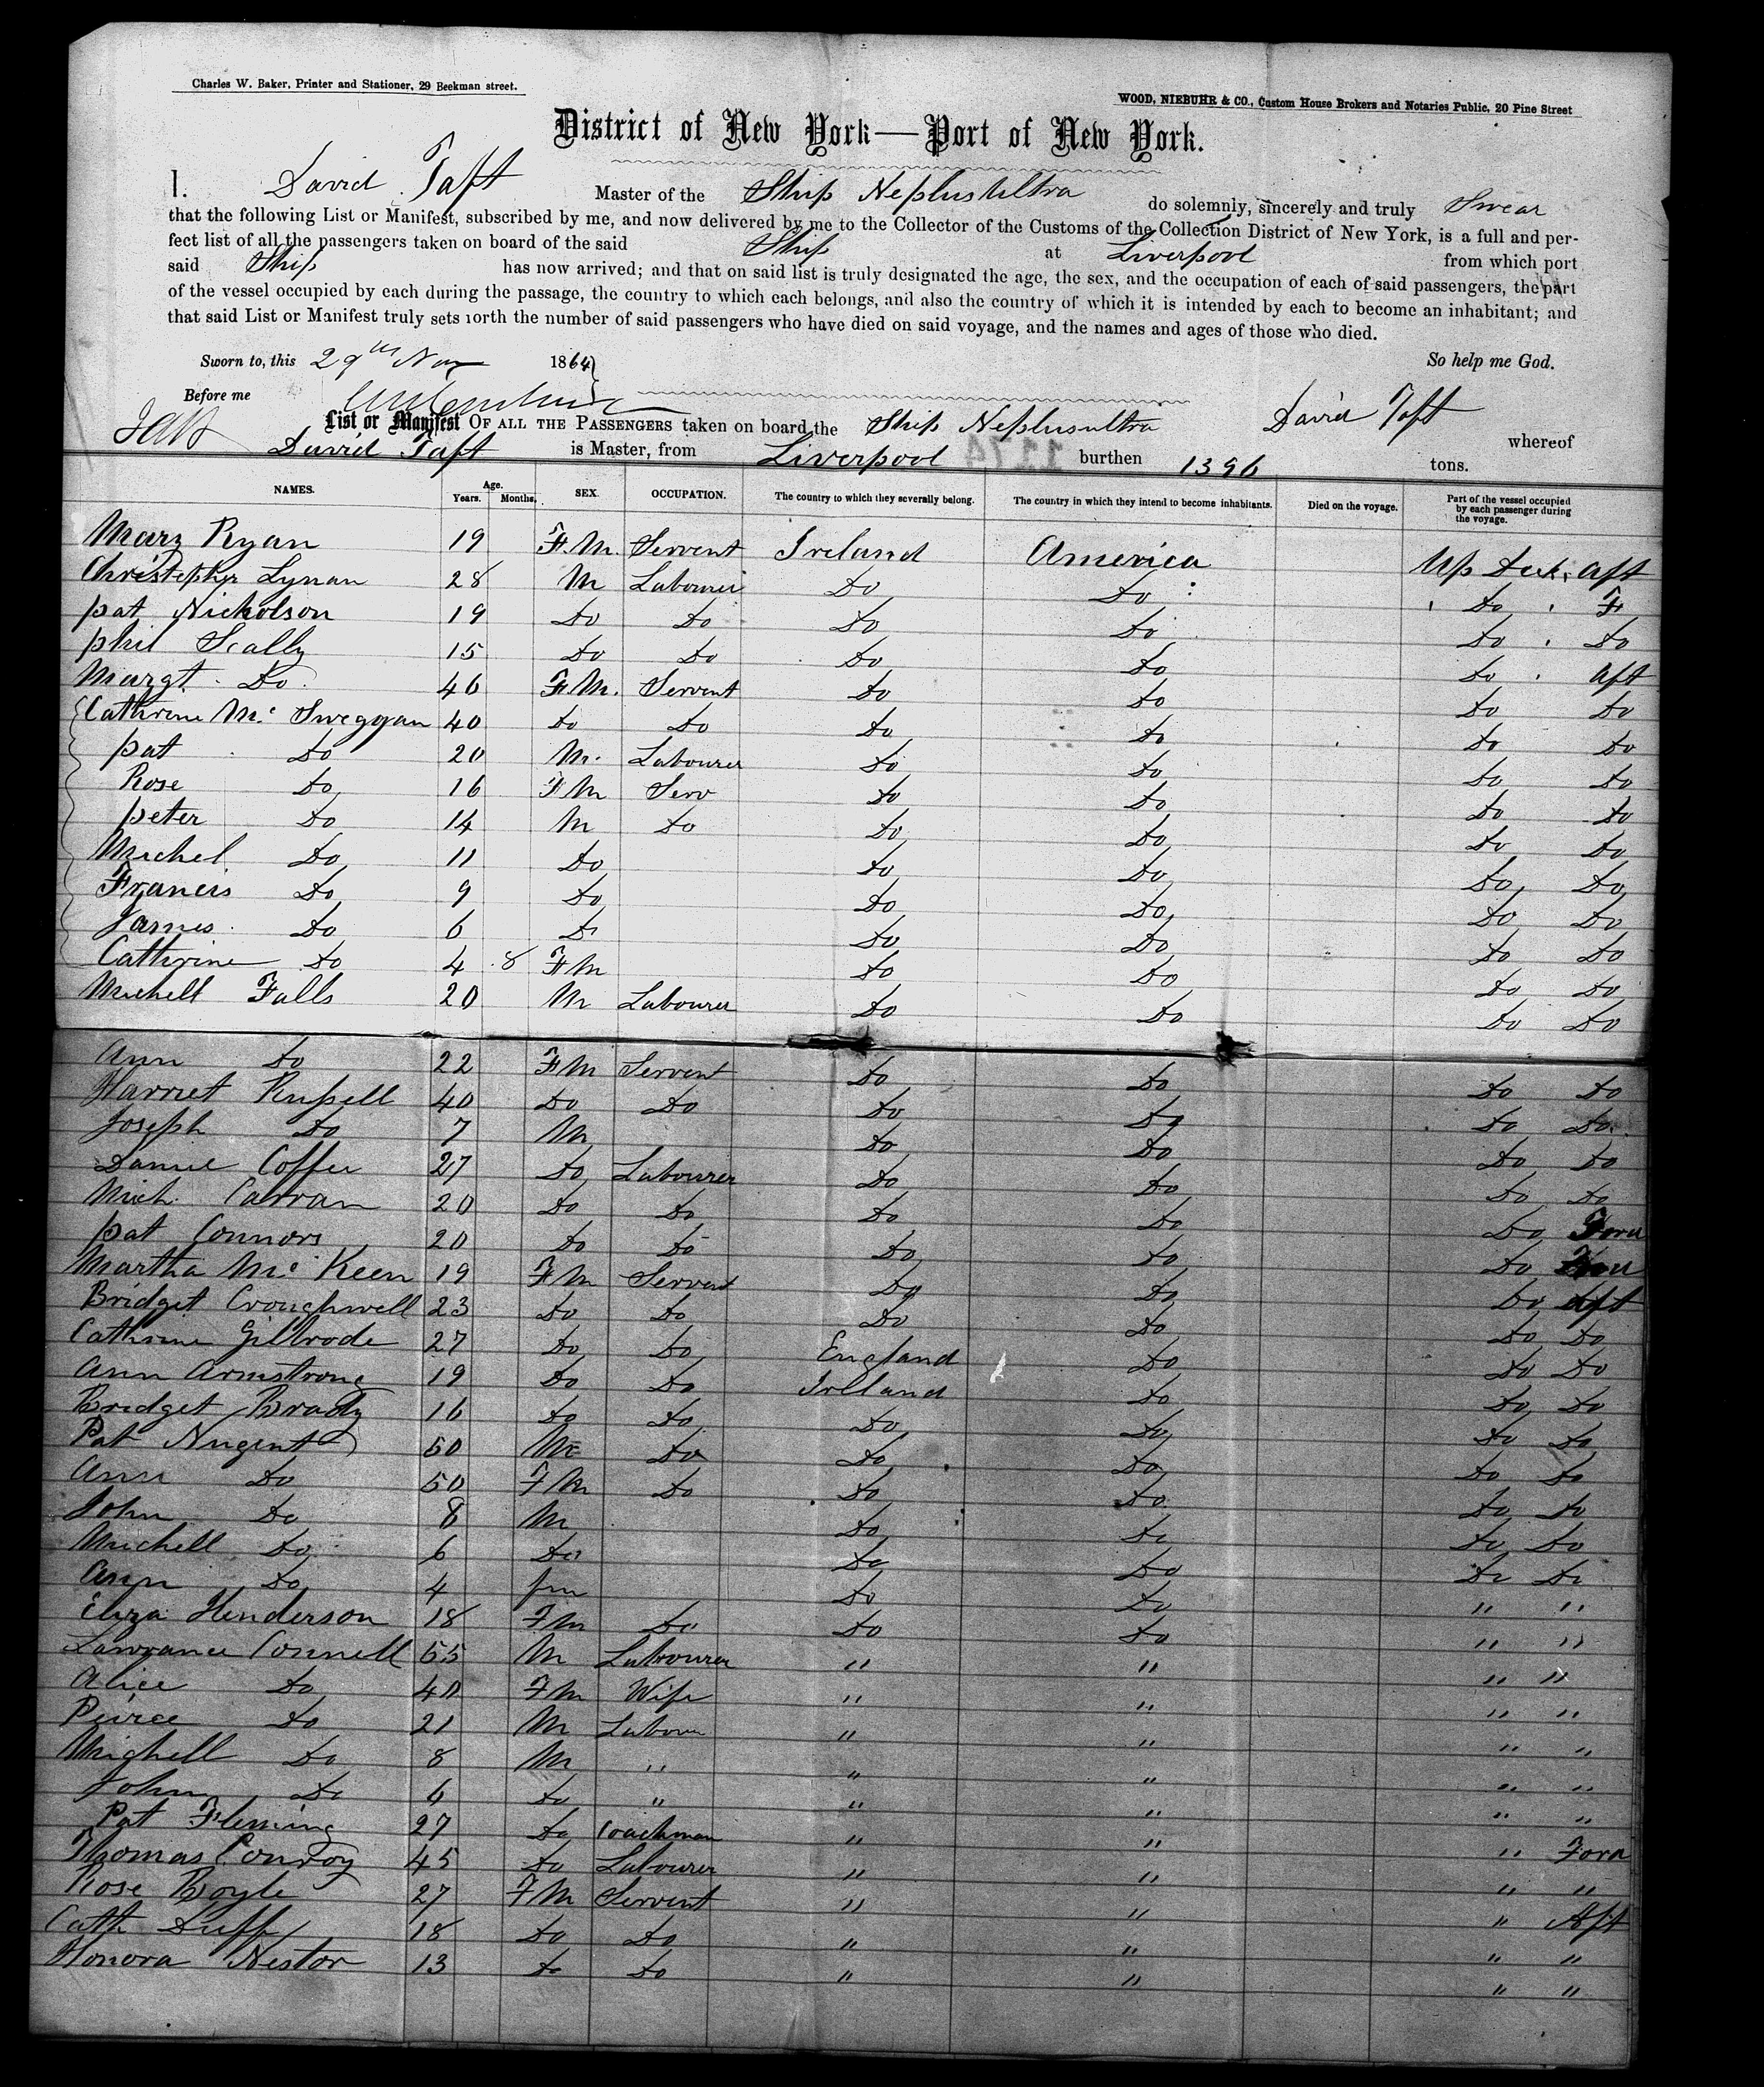 Charles W. Baker, Printer and Stationer, 29 Beekman street.
WOOD, NIEBUHR & CO., Custom House Brokers and Notaries Public, 20 Pine Street
District of New York—Port of New York.
I. David Taft Master of the Ship Neplusultra do solemnly, sincerely and truly Swear
that the following List or Manifest, subscribed by me, and now delivered by me to the Collector of the Customs of the Collection District of New York, is a full and per-
fect list of all the passengers taken on board of the said Ship at Liverpool from which port
said Ship has now arrived; and that on said list is truly designated the age, the sex, and the occupation of each of said passengers, the part
of the vessel occupied by each during the passage, the country to which each belongs, and also the country of which it is intended by each to become an inhabitant; and
that said List or Manifest truly sets forth the number of said passengers who have died on said voyage, and the names and ages of those who died.
Sworn to, this 29th Nov 1864 So help me God.
Before me David Taft
List or Manifest OF ALL THE PASSENGERS taken on board the Ship Neplusultra whereof
David Taft is Master, from Liverpool burthen 1396 tons.
1174
NAMES. Age. Years. Months. SEX. OCCUPATION. The country to which they severally belong. The country in which they intend to become inhabitants. Died on the voyage. Part of the vessel occupied by each passenger during the voyage.
Mary Ryan 19 F.M. Servent Ireland America Up Deck aft
Christepher Lynan 28 M Labourer Do Do Do F
pat Nicholson 19 Do Do Do Do Do Do
phil Scally 15 Do Do Do Do Do aft
Margt. Do 46 F M. Servent Do Do Do Do
Cathrine Mc Sweggan 40 Do Do Do Do Do Do
pat Do 20 M. Labourer Do Do Do Do
Rose Do 16 F M Serv Do Do Do Do
peter Do 14 M Do Do Do Do Do
Michel Do 11 Do Do Do Do Do
Francis Do 9 Do Do Do Do Do
James Do 6 Do Do Do Do Do
Cathrine Do 4 8 F M Do Do Do Do
Michell Falls 20 M Labourer Do Do Do Do
Ann Do 22 F M Servent Do Do Do Do
Harriet Russell 40 Do Do Do Do Do Do
Joseph Do 7 M Do Do Do Do
Daniel Coffee 27 Do Labourer Do Do Do Do
Mich. Carran 20 Do Do Do Do Do Forw
pat Connors 20 Do Do Do Do Do
Martha Mc Keen 19 F M Servent Do Do Do aft
Bridget Croughwell 23 Do Do Do Do Do Do
Cathrine Giltrode 27 Do Do England Do Do Do
Ann Armstrong 19 Do Do Ireland Do Do Do
Bridget Brady 16 Do Do Do Do Do Do
Pat Nugent 50 M Do Do Do Do Do
Ann Do 50 F M Do Do Do Do Do
John Do 8 M Do Do Do Do
Michell Do 6 Do Do Do Do Do
Ann Do 4 fm Do Do " "
Eliza Henderson 18 F M Do Do Do " "
Lawrance Connell 55 M Labourer " " " "
Alice Do 40 F M Wife " " " "
Peirce Do 21 M Labour " " " "
Mighell Do 8 M " " " " "
John Do 6 Do " " " " "
Pat Fleming 27 Do Coachman " " " Forn
Thomas Conroy 45 Do Labourer " " " "
Rose Boyle 27 F M Servent " " " Aft
Cath Duff 18 Do Do " " " "
Honora Nestor 13 Do Do " " " "